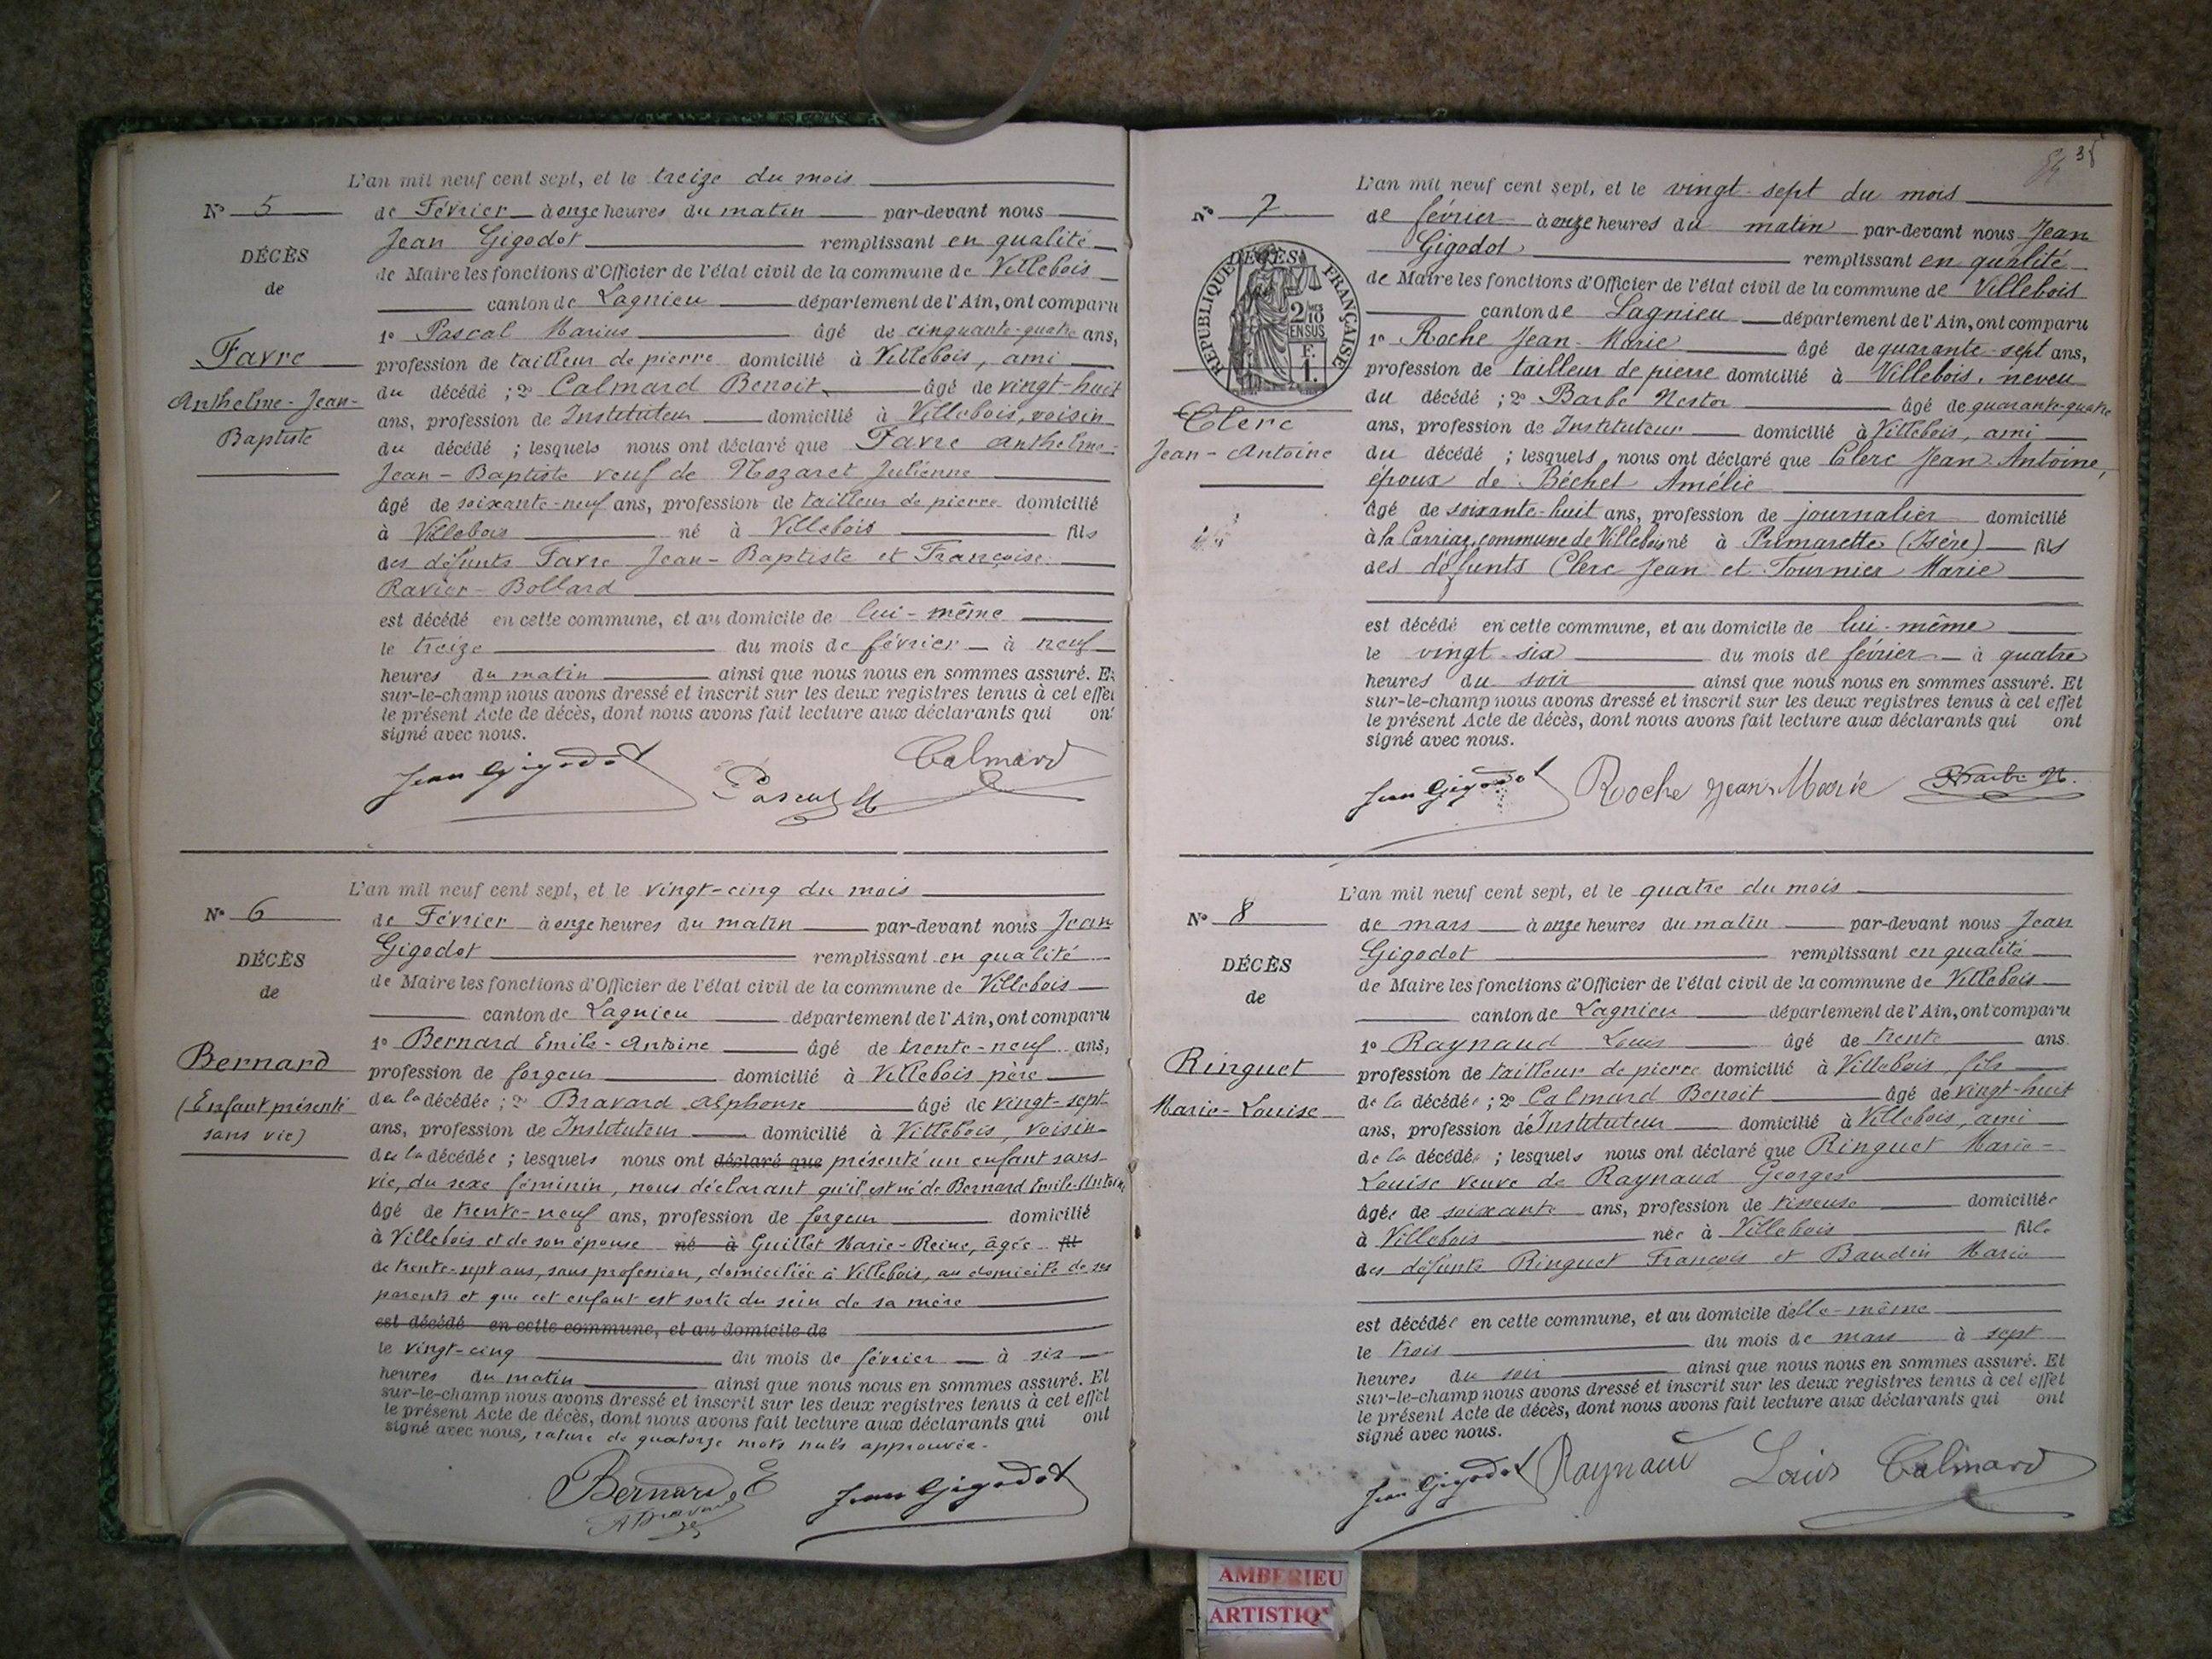 L'an mil neuf cent sept, et le treize du mois
N° 5
de Février à onze heures du matin par-devant nous
Jean Gigodot remplissant en qualité
DÉCÈS
de Maire les fonctions d'Officier de l'état civil de la commune de Villebois
de
canton de Lagnieu département de l'Ain, ont comparu
1° Pascal Marius âgé de cinquante-quatre ans,
Favre
profession de tailleur de pierre domicilié à Villebois, ami
Anthelme-Jean-
du décédé ; 2° Calmard Benoit âgé de vingt-huit
ans, profession de Instituteur domicilié à Villebois, voisin
Baptiste
du décédé ; lesquels nous ont déclaré que Favre Anthelme-
Jean-Baptiste veuf de Mozaret Julienne
âgé de soixante-neuf ans, profession de tailleur de pierre domicilié
à Villebois né à Villebois fils
des défunts Favre Jean-Baptiste et Françoise
Ravier-Bollard
est décédé en cette commune, et au domicile de lui-même
le treize du mois de février à neuf
heures du matin ainsi que nous nous en sommes assuré. Et
sur-le-champ nous avons dressé et inscrit sur les deux registres tenus à cet effet
le présent Acte de décès, dont nous avons fait lecture aux déclarants qui ont
signé avec nous.
Jean Gigodot Pascal M Calmard
L'an mil neuf cent sept, et le vingt-cinq du mois
N° 6
de Février à onze heures du matin par-devant nous Jean
Gigodot remplissant en qualité
DÉCÈS
de Maire les fonctions d'Officier de l'état civil de la commune de Villebois
de
canton de Lagnieu département de l'Ain, ont comparu
1° Bernard Emile-Antoine âgé de trente-neuf ans,
Bernard
profession de forgeur domicilié à Villebois père
(Enfant présenté
de la décédée ; 2° Bravard Alphonse âgé de vingt-sept
sans vie)
ans, profession de Instituteur domicilié à Villebois, voisin
de la décédée ; lesquels nous ont déclaré que présenté un enfant sans
vie, du sexe féminin, nous déclarant qu'il est né de Bernard Emile-Antoine,
âgé de trente-neuf ans, profession de forgeur domicilié
à Villebois et de son épouse né à Guillet Marie-Reine, âgée fil
de trente-sept ans, sans profession, domiciliée à Villebois, au domicile de ses
parents et que cet enfant est sorti du sein de sa mère
est décédé en cette commune, et au domicile de
le vingt-cinq du mois de février à six
heures du matin ainsi que nous nous en sommes assuré. Et
sur-le-champ nous avons dressé et inscrit sur les deux registres tenus à cet effet
le présent Acte de décès, dont nous avons fait lecture aux déclarants qui ont
signé avec nous, rature de quatorze mots nuls approuvée.
Bernard E Jean Gigodot
A Bravard
38
L'an mil neuf cent sept, et le vingt-sept du mois
N° 7
de février à onze heures du matin par-devant nous Jean
Gigodot remplissant en qualité
DÉCÈS
RÉPUBLIQUE FRANÇAISE
2/10 EN SUS
F. 1.
de Maire les fonctions d'Officier de l'état civil de la commune de Villebois
canton de Lagnieu département de l'Ain, ont comparu
1° Roche Jean-Marie âgé de quarante-sept ans,
profession de tailleur de pierre domicilié à Villebois, neveu
du décédé ; 2° Barbe Nestor âgé de quarante-quatre
Clerc
ans, profession de Instituteur domicilié à Villebois, ami
Jean-Antoine
du décédé ; lesquels nous ont déclaré que Clerc Jean Antoine,
époux de Béchet Amélie
âgé de soixante-huit ans, profession de journalier domicilié
à la Carriaz, commune de Villebois né à Primarette (Isère) fils
des défunts Clerc Jean et Tournier Marie
est décédé en cette commune, et au domicile de lui-même
le vingt-six du mois de février à quatre
heures du soir ainsi que nous nous en sommes assuré. Et
sur-le-champ nous avons dressé et inscrit sur les deux registres tenus à cet effet
le présent Acte de décès, dont nous avons fait lecture aux déclarants qui ont
signé avec nous.
Jean Gigodot Roche Jean-Marie Barbe N.
L'an mil neuf cent sept, et le quatre du mois
N° 8
de mars à onze heures du matin par-devant nous Jean
Gigodot remplissant en qualité
DÉCÈS
de Maire les fonctions d'Officier de l'état civil de la commune de Villebois
de
canton de Lagnieu département de l'Ain, ont comparu
1° Raynaud Louis âgé de trente ans
Ringuet
profession de tailleur de pierre domicilié à Villebois, fils
Marie-Louise
de la décédée ; 2° Calmard Benoit âgé de vingt-huit
ans, profession de Instituteur domicilié à Villebois, ami
de la décédée ; lesquels nous ont déclaré que Ringuet Marie-
Louise veuve de Raynaud Georges
âgée de soixante ans, profession de tisseuse domiciliée
à Villebois née à Villebois fille
des défunts Ringuet François et Baudin Marie
est décédée en cette commune, et au domicile d'elle-même
le trois du mois de mars à sept
heures du soir ainsi que nous nous en sommes assuré. Et
sur-le-champ nous avons dressé et inscrit sur les deux registres tenus à cet effet
le présent Acte de décès, dont nous avons fait lecture aux déclarants qui ont
signé avec nous.
Jean Gigodot Raynaud Louis Calmard
AMBERIEU
ARTISTIQ